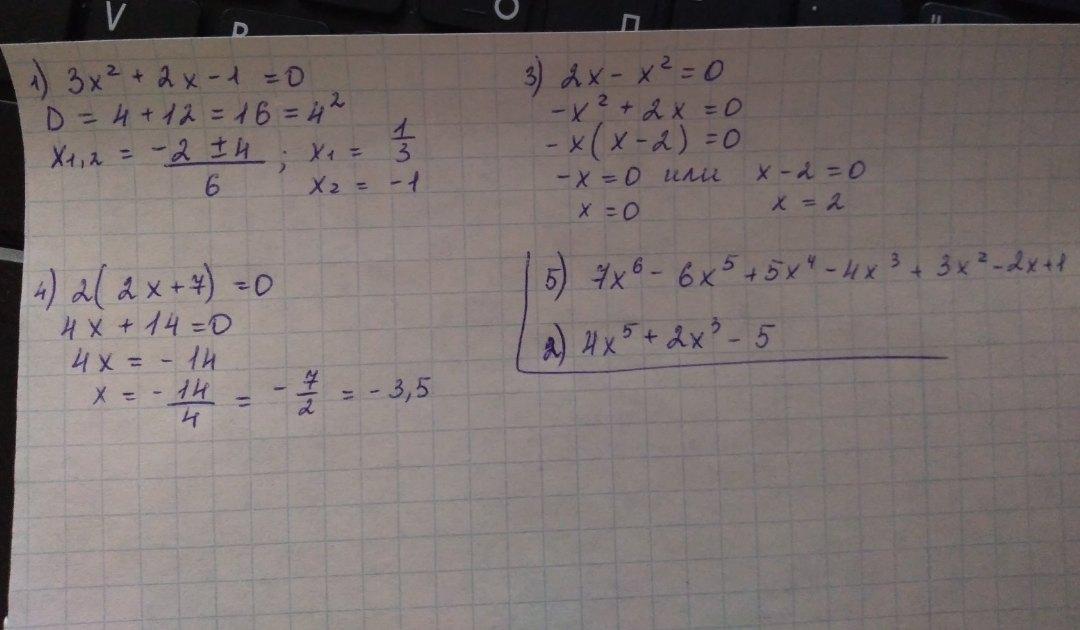 1) 3x² + 2x - 1 = 0
D = 4 + 12 = 16 = 4²
x₁,₂ = (-2 ± 4)/6 ; x₁ = 1/3
x₂ = -1
3) 2x - x² = 0
-x² + 2x = 0
-x(x - 2) = 0
-x = 0 или x - 2 = 0
x = 0 x = 2
4) 2(2x + 7) = 0
4x + 14 = 0
4x = - 14
x = - 14/4 = - 7/2 = - 3,5
5) 7x⁶ - 6x⁵ + 5x⁴ - 4x³ + 3x² - 2x + 1
2) 4x⁵ + 2x³ - 5